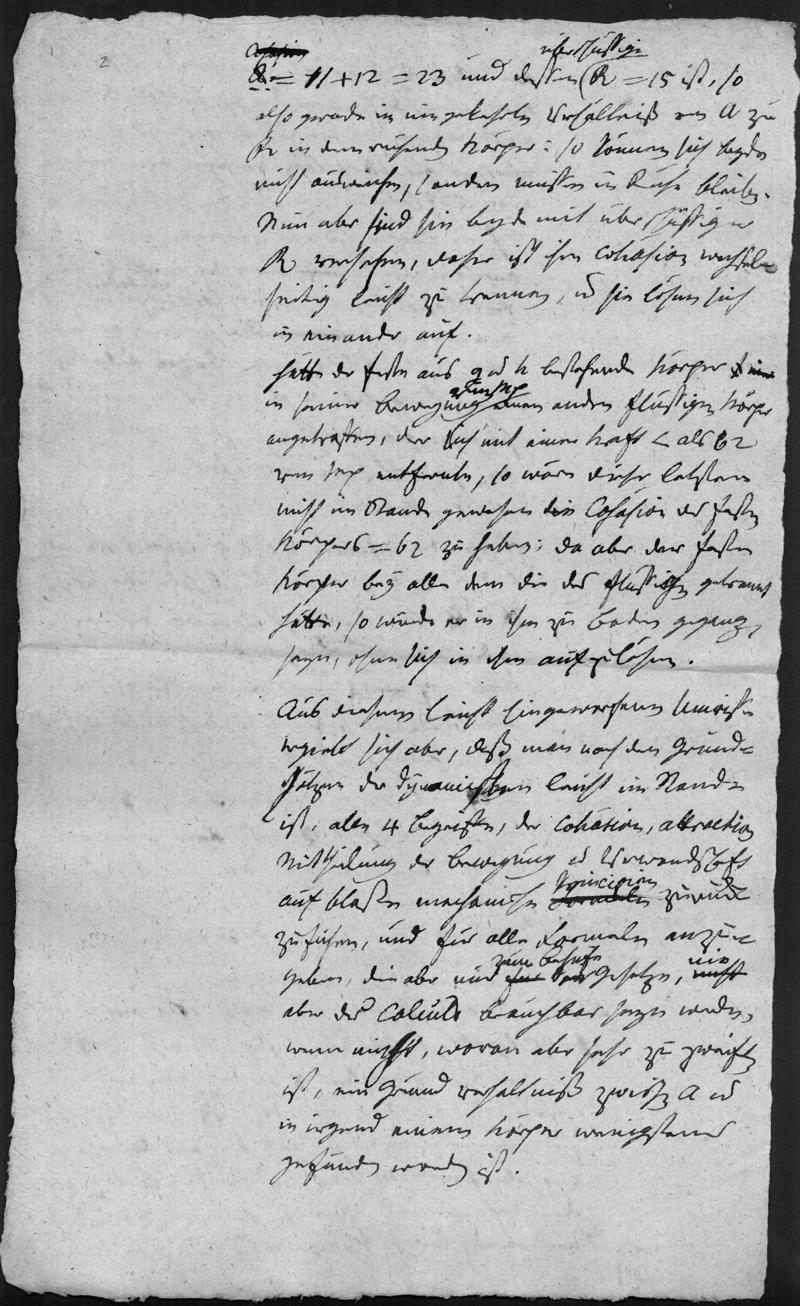 2
überflüssige
= 11 + 12 = 23 und dessen R = 15 ist, so
also gerade in umgekehrten Verhältniß von A zu
R in dem ruhenden Körper: so können sich beyde
nicht ausweichen, sondern müssen in Ruhe bleiben.
Nun aber sind sie beyde mit überflüssiger
R versehen, daher ist ihre Cohäsion wechsel-
seitig leicht zu trennen, u sie lösen sich
in einander auf.
hätte der feste aus g u h bestehende Körper
in seiner Bewegung einen andern flüssigen Körper
angetroffen, der sich mit einer Kraft < als 62
von entfernte, so wäre dieser letztere
nicht im Stande gewesen die Cohäsion des festen
Körpers = 62 zu heben; da aber der feste
Körper bey alle dem die des flüssigen getrennt
hätte, so würde er in ihm zu Boden gegangen
seyn, ohne sich in ihm aufzulösen.
Aus diesem leicht hingeworfenen Umrisse
ergiebt sich aber, daß man nach den Grund-
sätzen der dynamischen leicht im Stande
ist, alle 4 Begriffe, der Cohäsion, attraction
Mittheilung der Bewegung u Verwandschaft
Principien
auf bloße mechanische zurück
zuführen, und für alle Formeln anzu-
zum Behufe nie
geben, die aber nur Gesetze, nicht
aber des Calculs brauchbar seyn werden,
wenn nicht, woran aber sehr zu zweifeln
ist, ein Grundverhältniß zwischen A u
in irgend einem Körper wenigstens
gefunden worden ist.